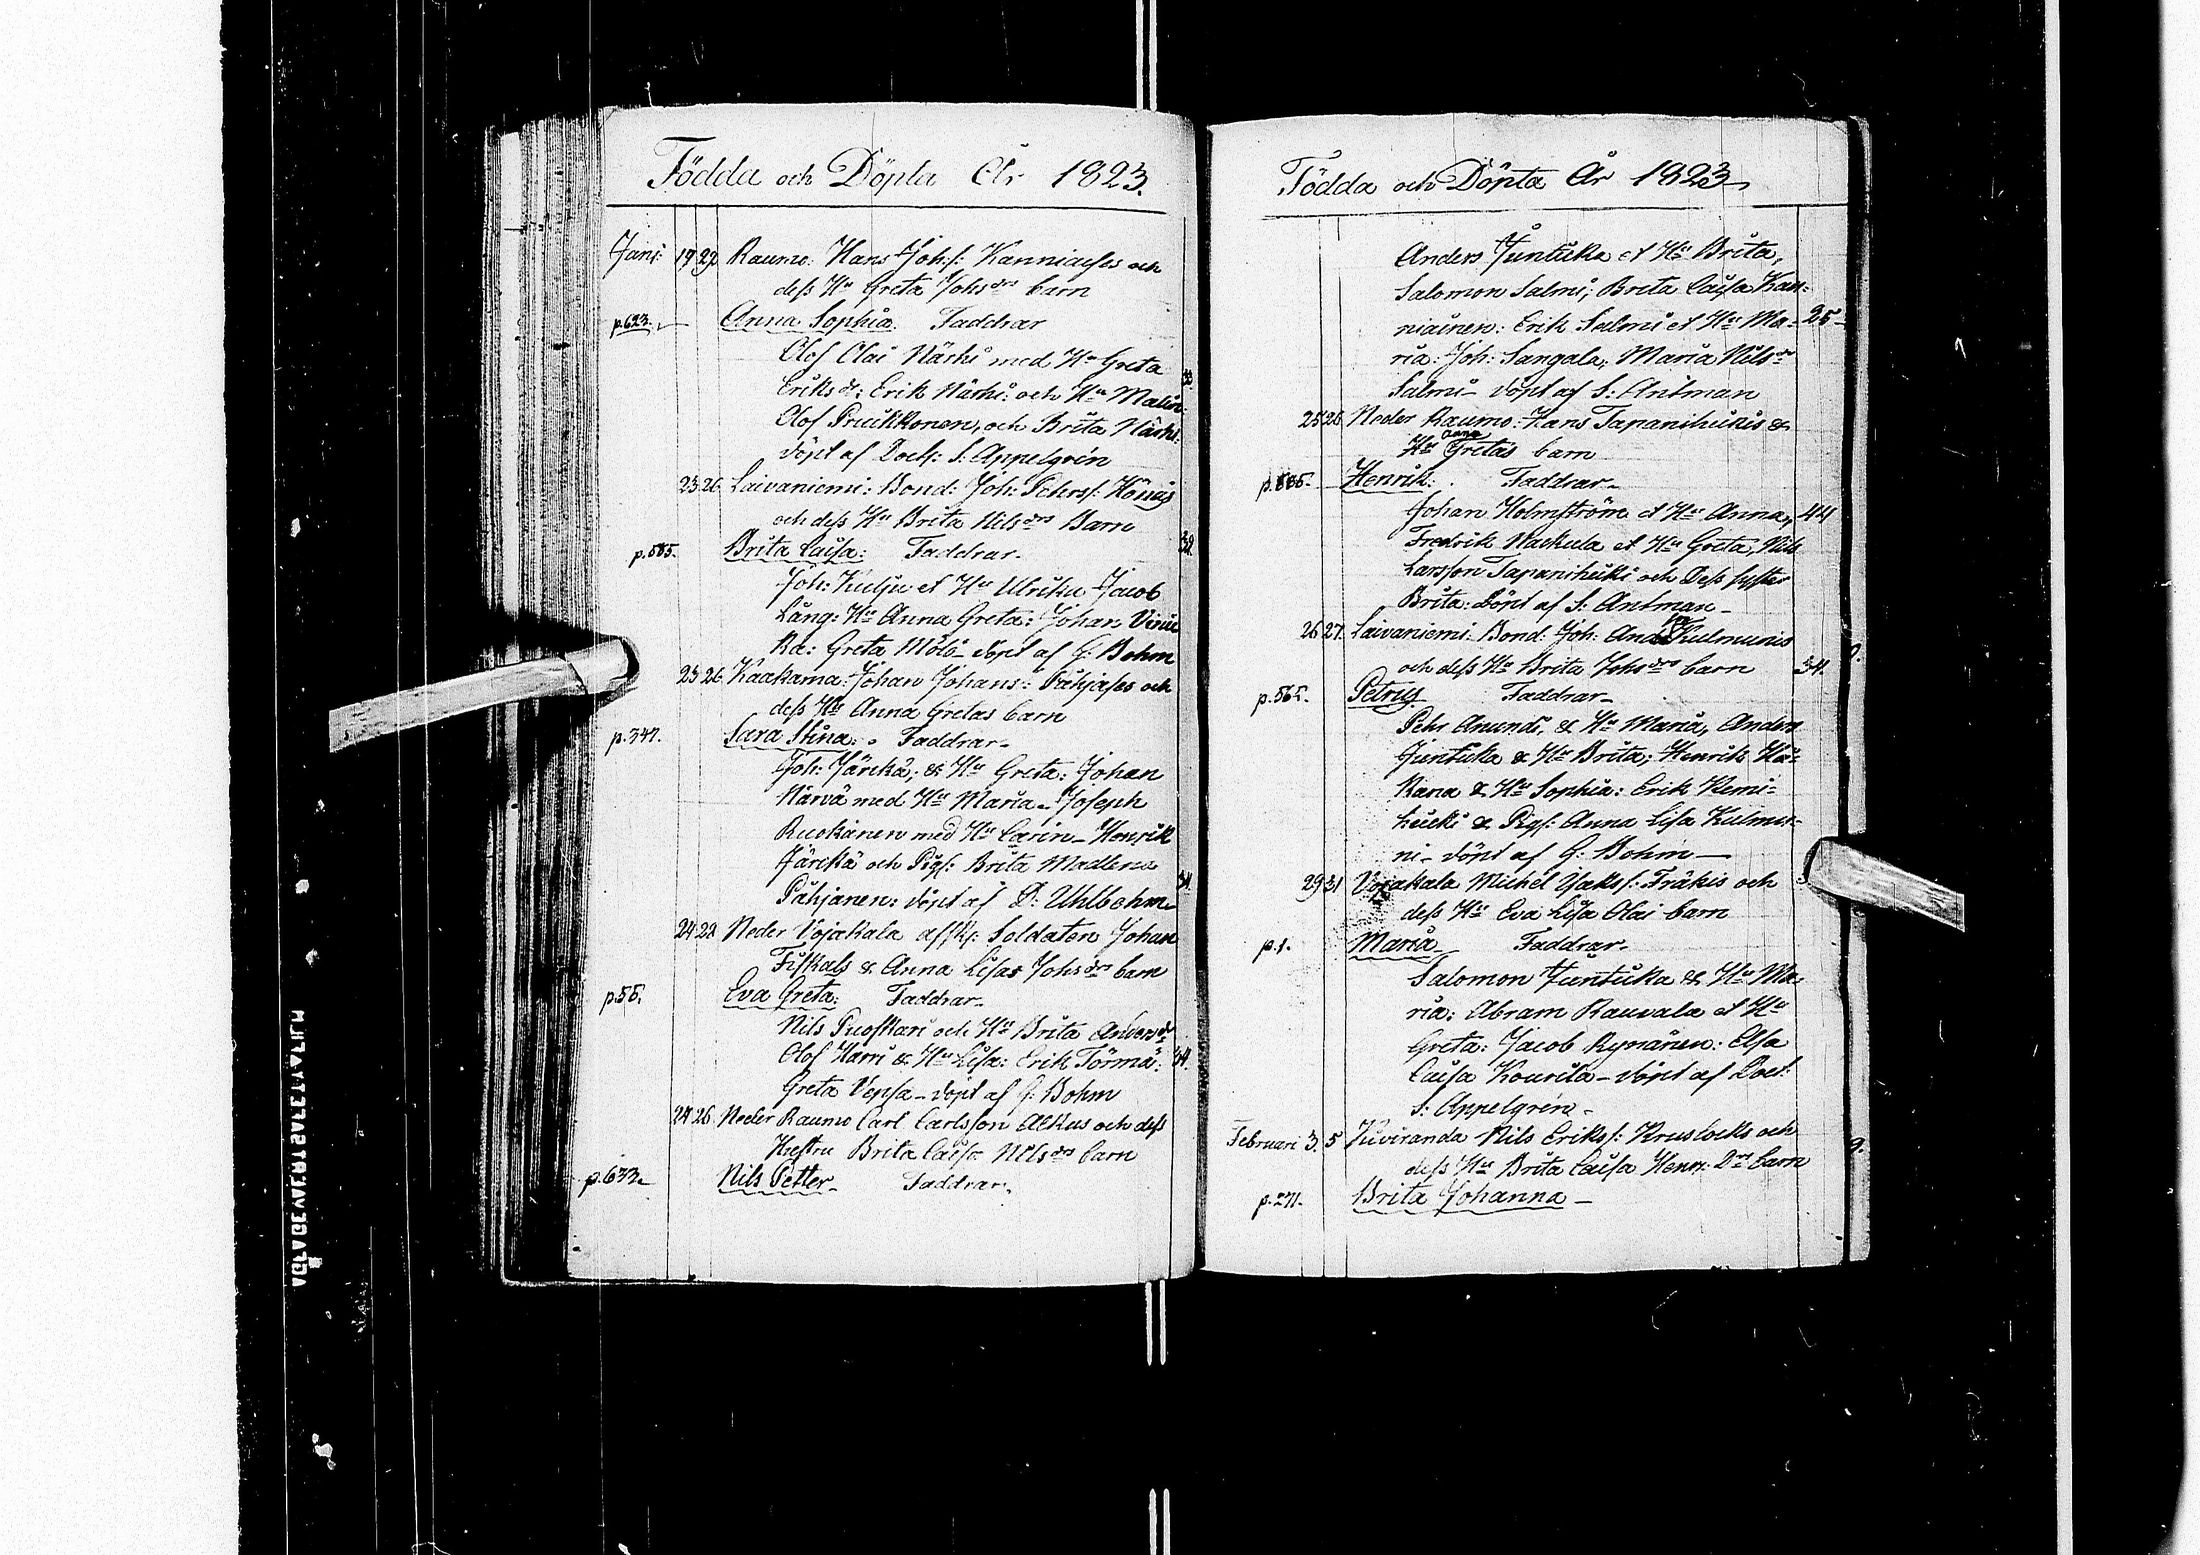 Födda och Döpta År 1823.
Janr: 19 29 Raumo: Hans Joh:s: Kanniaises och
dess Hu Greta Johsdrs barn
p.623. Anna Sophia. Faddrar
Olof Olai Närhi med Hu Greta
Eriksdr: Erik Närhi: och Hu Malin:
Olof Pruikkonen, och Brita Närhi:
döpt af Doct: S: Appelgrén
23 26 Laivaniemi: Bond: Joh: Pehrs:
och dess Hu Brita Nilsdrs Barn
p.585. Brita Caisa: Faddrar.
Joh: Kulju et Hu Ulrika Jacob
Lång: Hu Anna Greta: Johan
Greta döpt af G: Bohm
23 26 Kaakama: Johan Johans: Påhjases och
dess Hu Anna Gretas barn
p.347. Sara Stina: Faddrar
Joh: Järckä; & Hu Greta: Johan
Närvä med Hu Maria Joseph
Ruokanen med Hu Carin Henrik
Järckä och Pigs: Brita Madlena
Påhjanen: döpt af D: Uhlbohm
24 28 Neder Vojakala afsk: Soldaten Johan
Fiskals & Anna Lisas Johsdrs barn
p.55. Eva Greta: Faddrar
Nils Puoskari och Hu Brita Andersdr
Olof Harri & Hu Lisa: Erik Törmä: 34.
Greta Vepsa döpt af G: Bohm
24 26 Neder Raumo Carl Carlsson Alkus och dess
Hustru Brita Caisa Nilsdrs barn
p.633 Nils Petter Faddrar
Födda och Döpta År 1823
Anders Juntika et Hu Brita,
Salomon Salmi; Brita Caisa Kan=
niainen: Erik Salmi et Hu Ma= 25
ria: Joh: Sangala; Maria Nilsdr
Salmi döpt af S: Antman
25 26 Neder Raumo: Hans Tapanihuikis &
Hu Anna Gretas barn
Henrik: Faddrar
Johan Holmström et Hu Anna, 44
Fredrik Naekula et Hu Greta, Nils
Larsson Tapanihuiki och Dess syster
Brita: Döpt af S: Antman
26 27 Laivaniemi Bond: Joh: And: Kulmunis
och dess Hu Brita Johsdrs barn 34.
p.565. Petrus Faddrar
Pehr Anundi, & Hu Maria, Anders
Juntika & Hu Brita; Henrik Hä=
kana & Hu Sophia: Erik Kemi=
huiki & Pigs: Anna Lisa Kulmu=
ni döpt af G: Bohm
29 31 Vojakala Michel Jakss: Fräkis och
dess Hu Eva Lisa Olai barn
p.1. Maria Faddrar
Salomon Juntika & Hu Ma=
ria: Abram Rauvala et Hu
Greta: Jacob Rynänen: Elsa
Caisa Kourila döpt af Doct:
S: Appelgrén
Februari 3. 5 Kiviranda Nils Eriks: Kruslocks och
dess Hu Brita Caisa Henr: Drs barn
p.271. Brita Johanna
AGFAGEVAERT SAFETY FILM